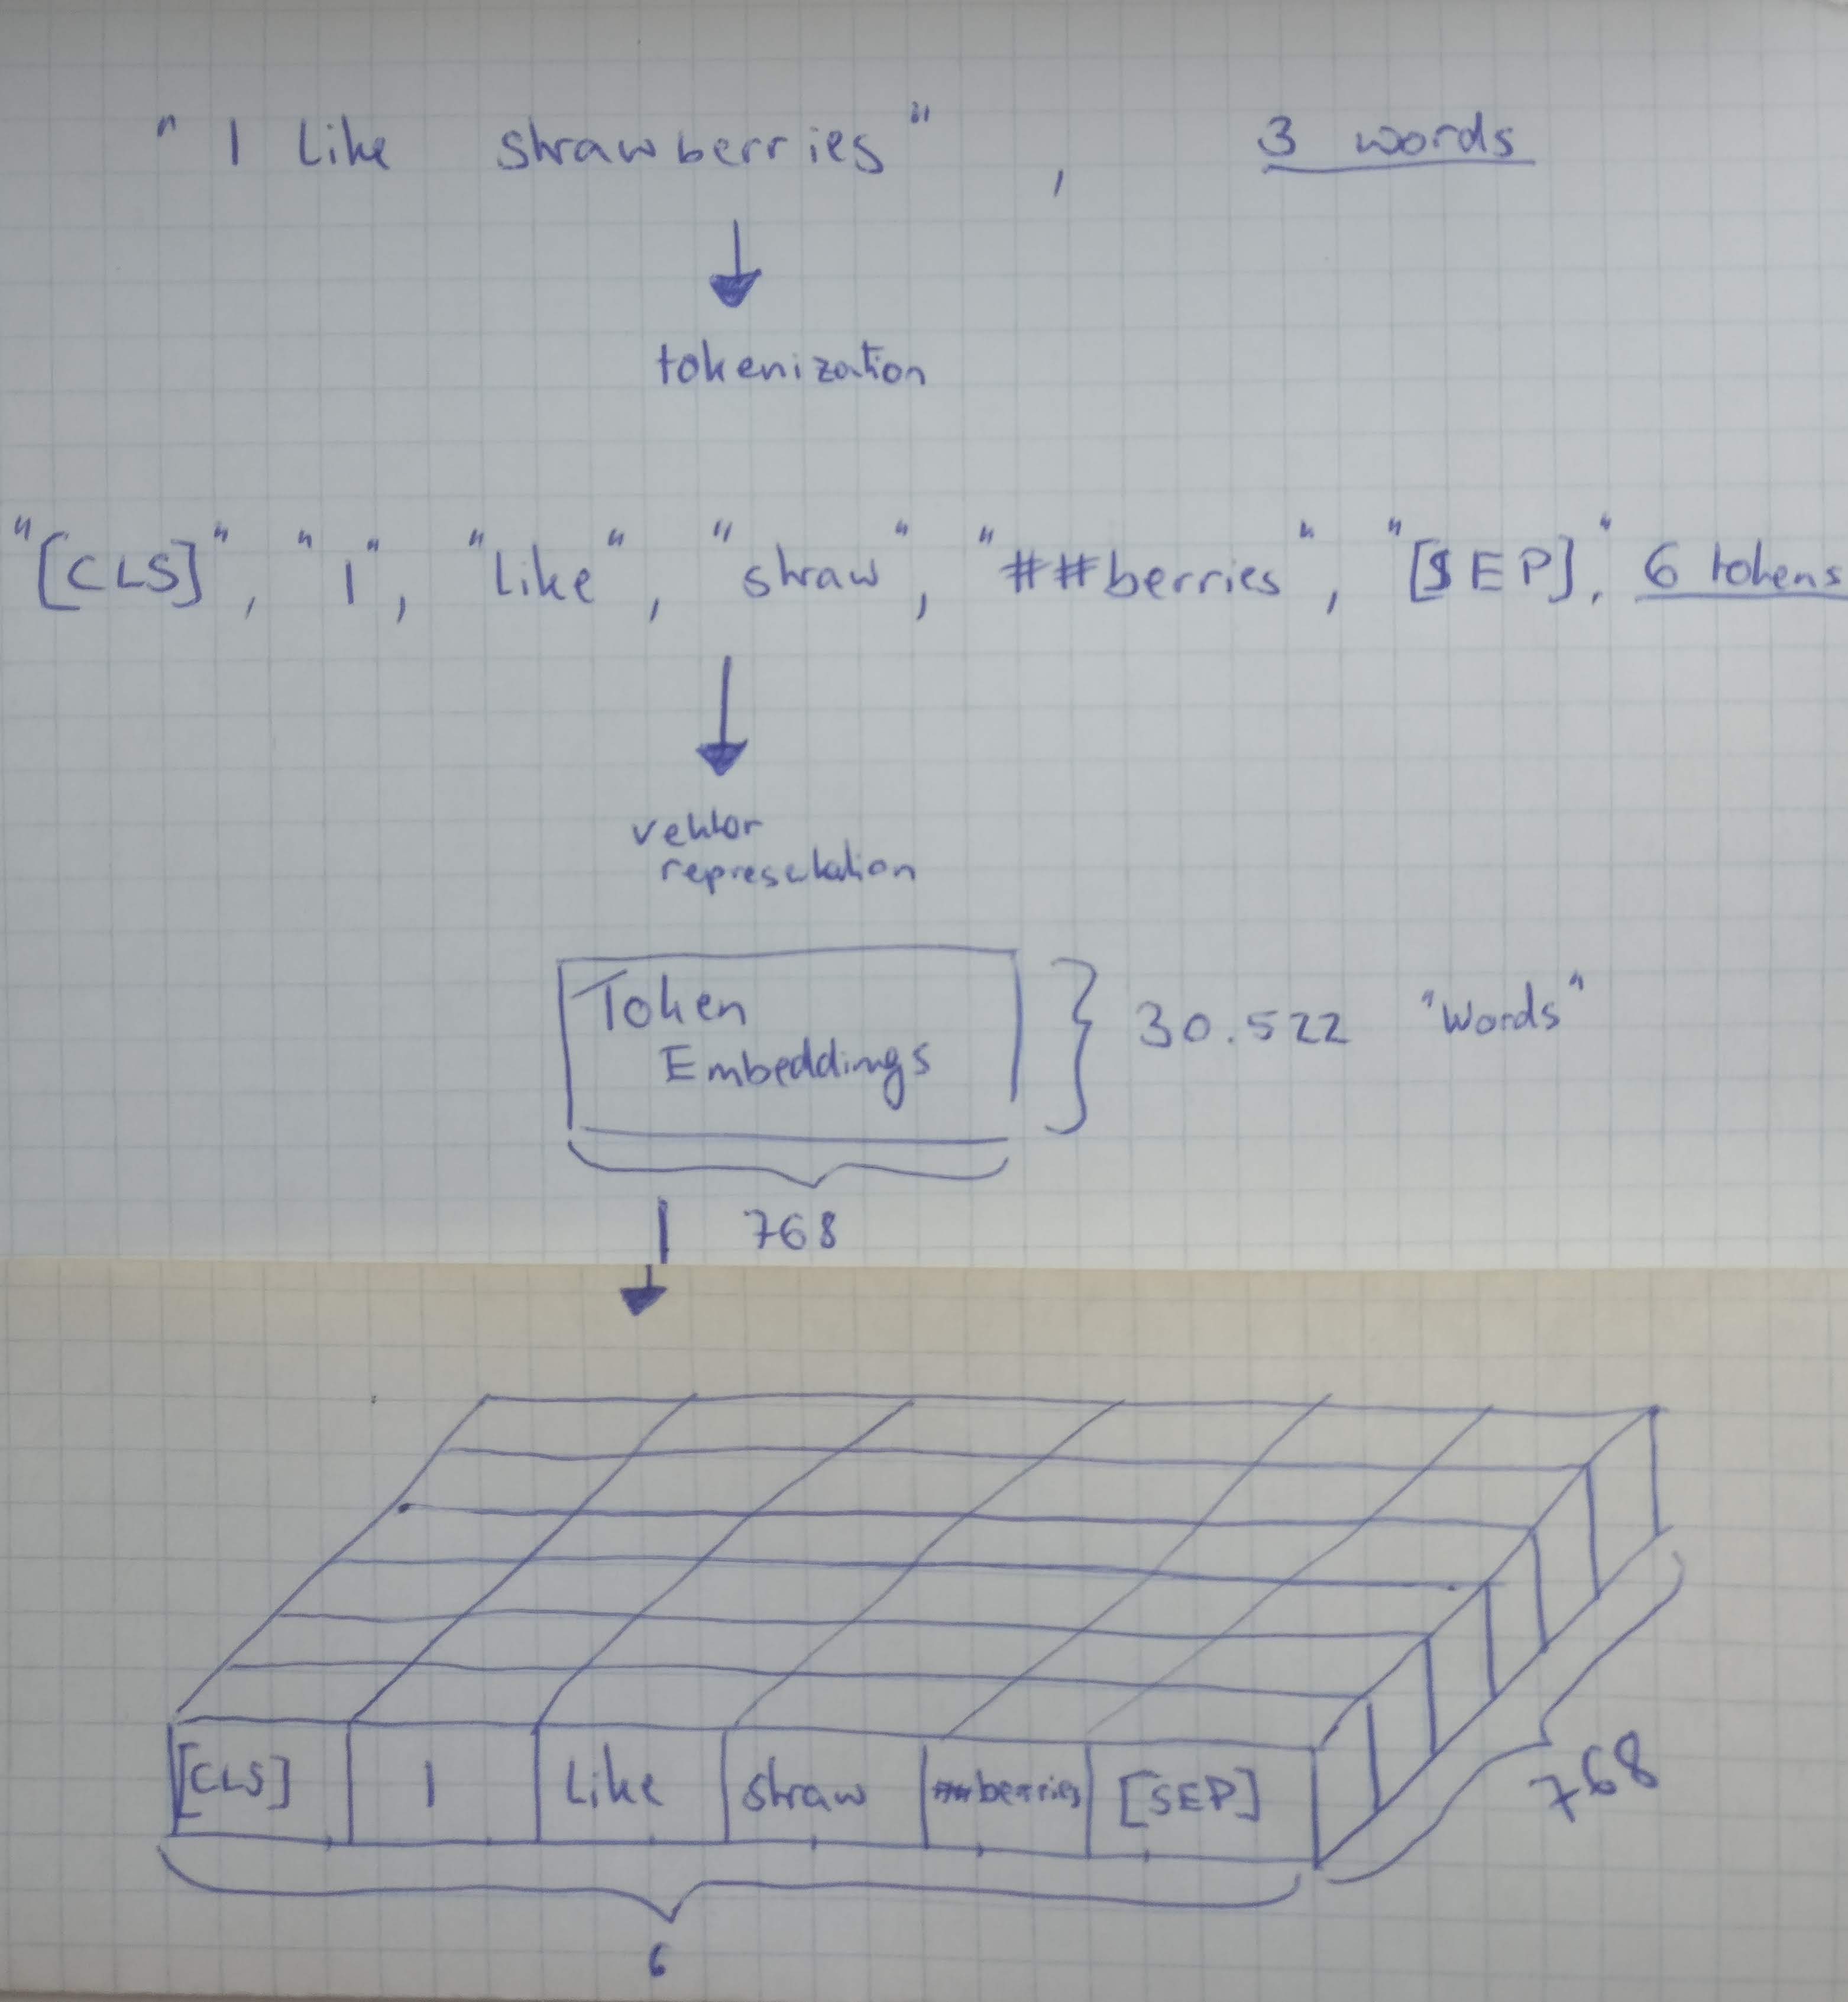 " I like strawberries " , 3 words
tokenization
"[CLS]", "I", "like", "straw", "##berries", "[SEP]", 6 tokens
vektor
represetation
Token
Embeddings
30.522 "words"
768
[CLS] I like straw ##berries [SEP]
768
6